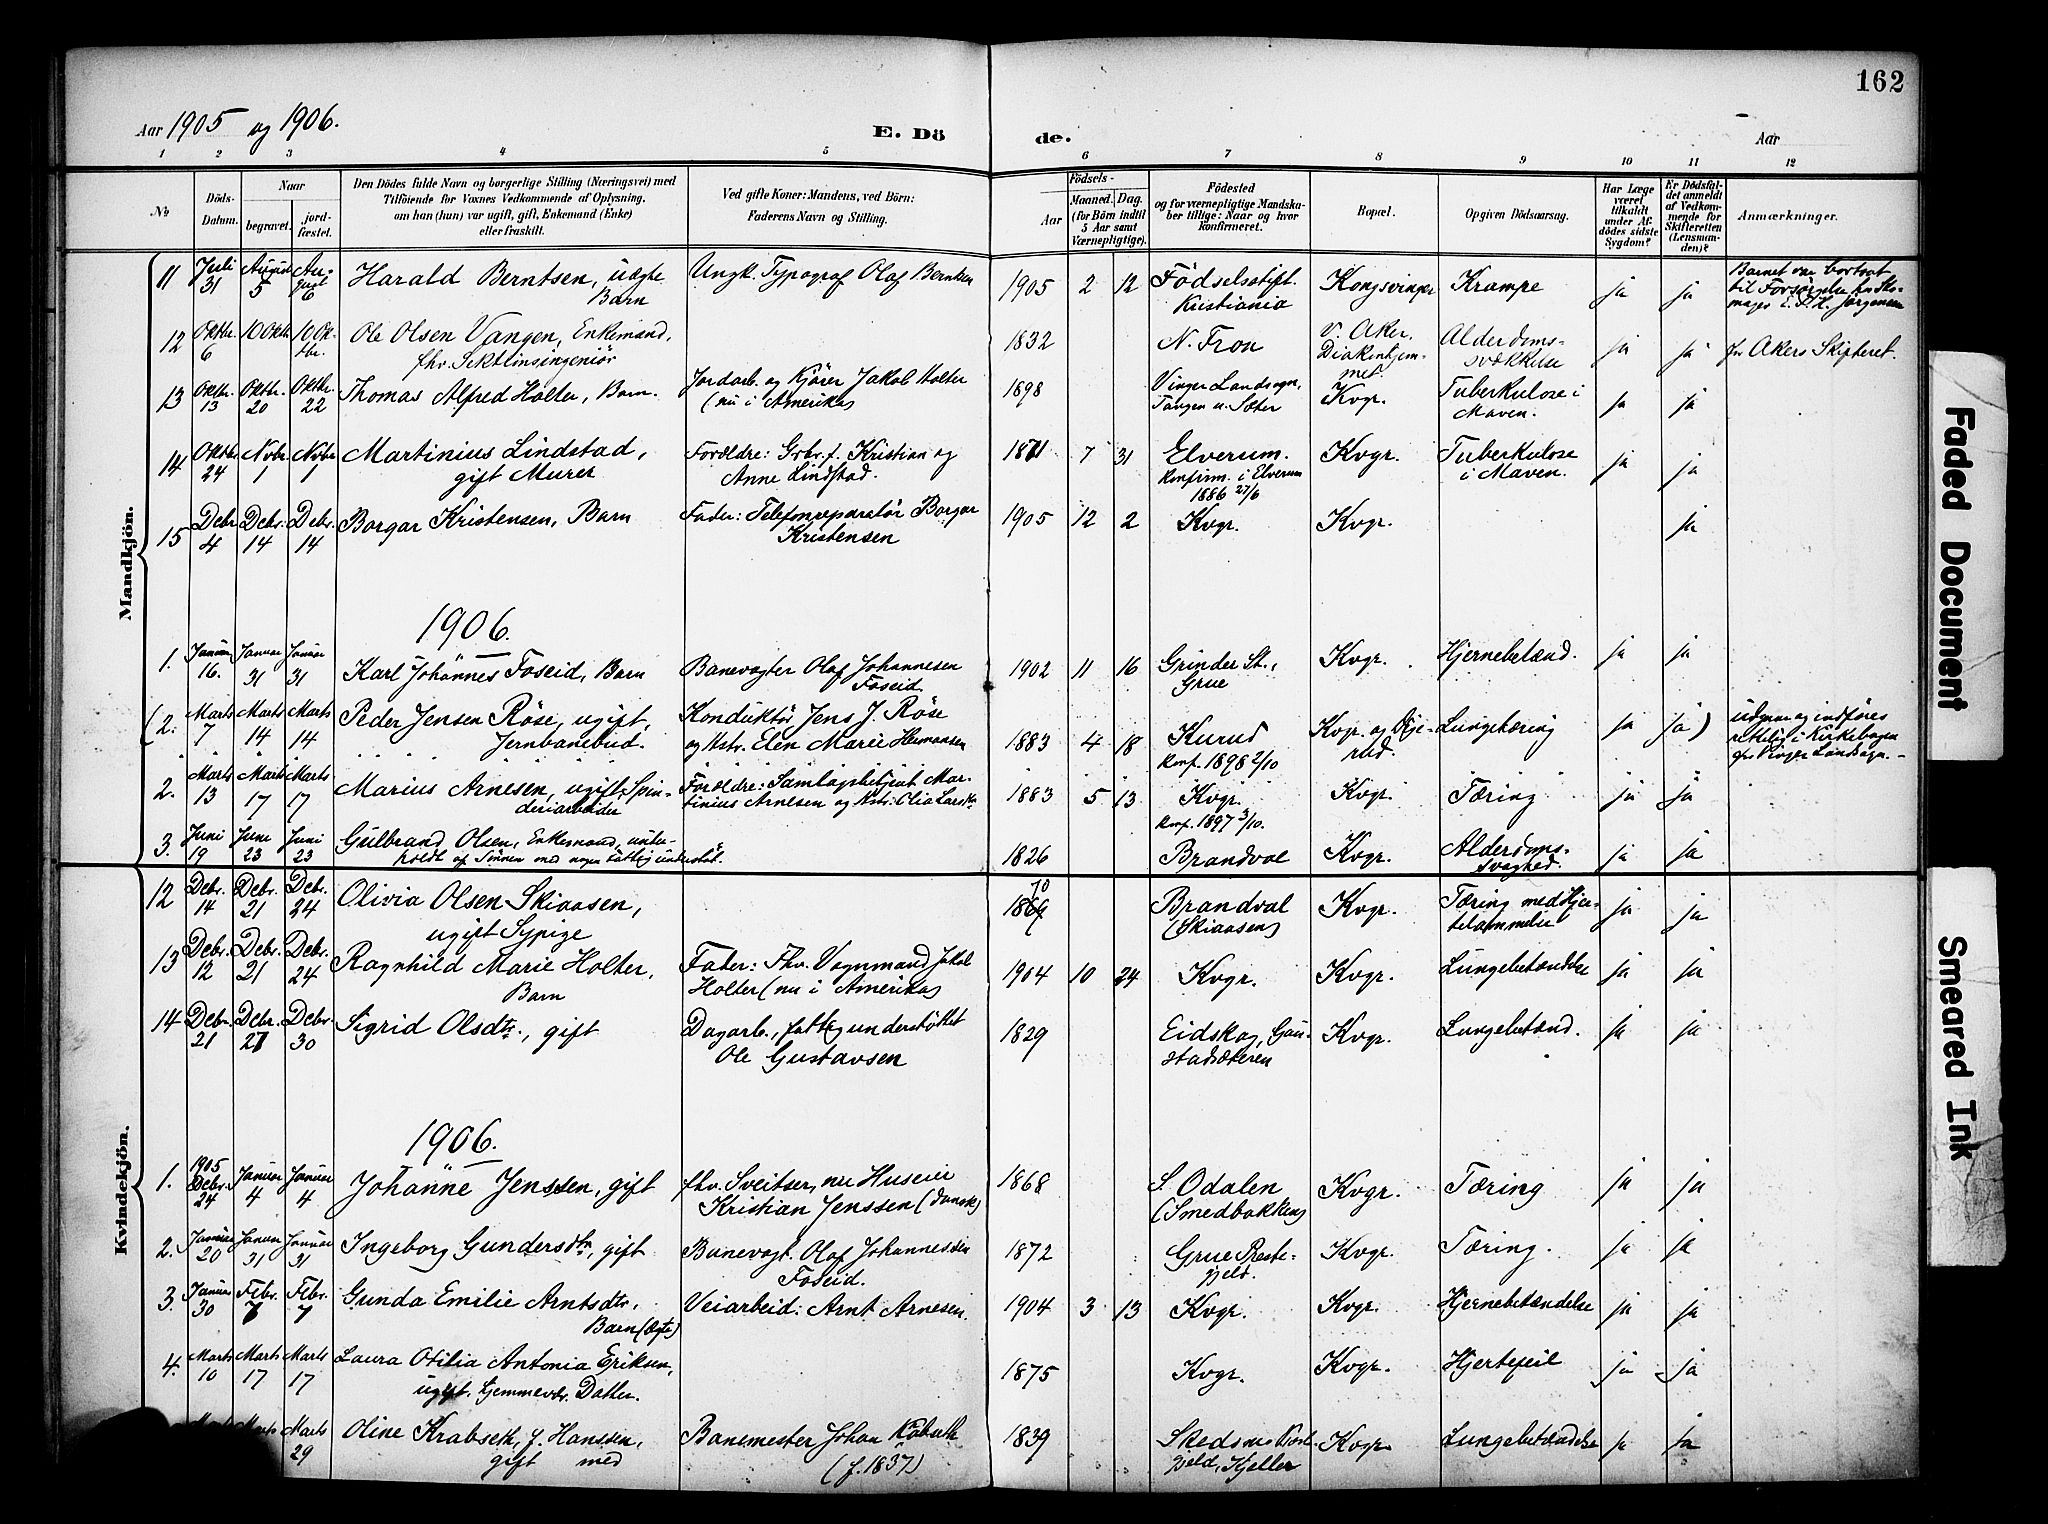 162
Aar 1905 og 1906.
E. Dö
de.
Aar
1 2 3 4 5 6 7 8 9 10 11 12
№
Döds-
Datum.
Naar
begravet.
jord-
fæstet.
Den Dödes fulde Navn og borgerlige Stilling (Næringsvei) med
Tilföiende for Voxnes Vedkommende af Oplysning.
om han (hun) var ugift, gift, Enkemand (Enke)
eller fraskilt.
Ved gifte Koner: Mandens, ved Börn:
Faderens Navn og Stilling.
Födsels-
Aar
Maaned.
Dag.
(for Börn indtil
5 Aar samt
Værnepligtige).
Födested
og for værnepligtige Mandska-
ber tillige: Naar og hvor
konfirmeret.
Bopæl.
Opgiven Dödsaarsag.
Har Læge
været
tilkaldt
under Af-
dödes sidste
Sygdom?
Er Dödsfal-
det anmeldt
af Vedkom-
mende for
Skifteretten
(Lensman-
den)?
Anmærkninger.
Mandkjön.
11 Juli 31 August 5 August 6 Harald Berntsen, uægte Barn Ungk. Typograf Olaf Berntsen 1905 2 12 Födselsstift. Kristiania Kongsvinger Krampe ja ja Barnet var bortsat til Forsörgelse
12 Oktbr. 6 10 Oktbr. 10 Oktbr. Ole Olsen Vangen, Enkemand, fhv. Sektionsingeniör 1832 N. Fron V. Aker. Diakonhjemmet. Alderdoms-svækkelse ja ja for Akers Skifteret.
13 Oktbr. 13 Oktbr. 20 Oktbr. 22 Thomas Alfred Holter, Barn. Jordarb. og Kjörer Jakob Holter (nu i Amerika) 1898 Vinger Landsogn, Tangen u. Sæter Kvgr. Tuberkulose i Maven. ja ja
14 Oktbr. 24 Novbr. 1 Novbr. 1 Martinius Lindstad, gift Murer Forældre: Grbr.f. Kristian og Anne Lindstad. 1871 7 31 Elverum. Konfirm. i Elverum 1886 27/6 Kvgr. Tuberkulose i Maven. ja ja
15 Debr 4 Debr. 14 Debr. 14 Borgar Kristensen, Barn Fader: Telefonreparatör Borgar Kristensen 1905 12 2 Kvgr. Kvgr. ja
1906.
1. Januar 16. Januar 31 Januar 31 Karl Johannes Foseid, Barn Banevogter Olaf Johannesen Foseid. 1902 11 16 Grinder St., Grue Kvgr. Hjernebetænd. ja ja
(2. Marts 7 Marts 14 Marts 14 Peder Jensen Röse, ugift, Jernbanebud. Konduktör Jens J. Röse og Hstr. Elen Marie Hermansen 1883 4 18 Kurud Konf. 1898 2/10 Kvgr. og Lungetæring ja ja) udgaar og indföres rettelig i Kirkebogen for Vinger Landsogn. -
2. Marts 13 Marts 17 Marts 17 Marius Arnesen, ugift, Spinderiarbeider Forældre: Samlagsbetjent Martinius Arnesen og Hstr: Olia Larsdtr 1883 5 13 Kvgr. Konf. 1897 3/10. Kvgr. Tæring ja ja
3. Juni 19 Juni 23 Juni 23 Gulbrand Olsen, Enkemand, underholdt af Sönnen med nogen Fattigunderstöt. 1826 Brandval Kvgr. Alderdoms-svaghed. ja ja
Kvindekjön.
12 Debr. 14 Debr. 21 Debr. 24 Olivia Olsen Skiaasen, ugift Sypige 1869 70 Brandval (Skiaasen) Kvgr. Tæring med ja ja
13 Debr. 12 Debr. 21 Debr. 24 Ragnhild Marie Holter, Barn Fader: Fhv. Vognmand Jakob Holter (nu i Amerika) 1904 10 24 Kvgr. Kvgr. Lungebetændelse ja ja
14 Debr. 21 Debr. 27 Debr 30 Sigrid Olsdtr., gift Dagarb., fattigunderstöttet Ole Gustavsen 1829 Eidskog, Kvgr. Lungebetænd. ja ja
1906.
1. 1905 Debr. 24 Januar 4 Januar 4 Johanne Jenssen, gift fhv. Sveitser, nu Huseier Kristian Jenssen (dansk) 1868 S. Odalen (Smedbakken) Kvgr. Tæring ja ja
2. Januar 20 Januar 31 Januar 31 Ingeborg Gundersdtr, gift Banevogt. Olaf Johannessen Foseid. 1872 Grue Prestegjeld. Kvgr. Tæring. ja ja
3. Januar 30 Febr. 7 Febr. 7 Gunda Emilie Arntsdtr, Barn (ægte) Veiarbeid: Arnt Arnesen. 1904 3 13 Kvgr. Kvgr. Hjernebetændelse ja ja
4. Marts 10 Marts 17 Marts 17 Laura Otilia Antonia Eriksen, ugift, hjemmevær. Datter. 1875 Kvgr. Kvgr. Hjertefeil ja ja
Marts Marts 29 Oline Krabseth, f. Hanssen, gift med Banemester Johan Krabseth (f. 1837) 1839 Skedsmo Prestgjeld, Kjeller Kvgr. Lungebetændelse ja ja
Faded Document
Smeared Ink